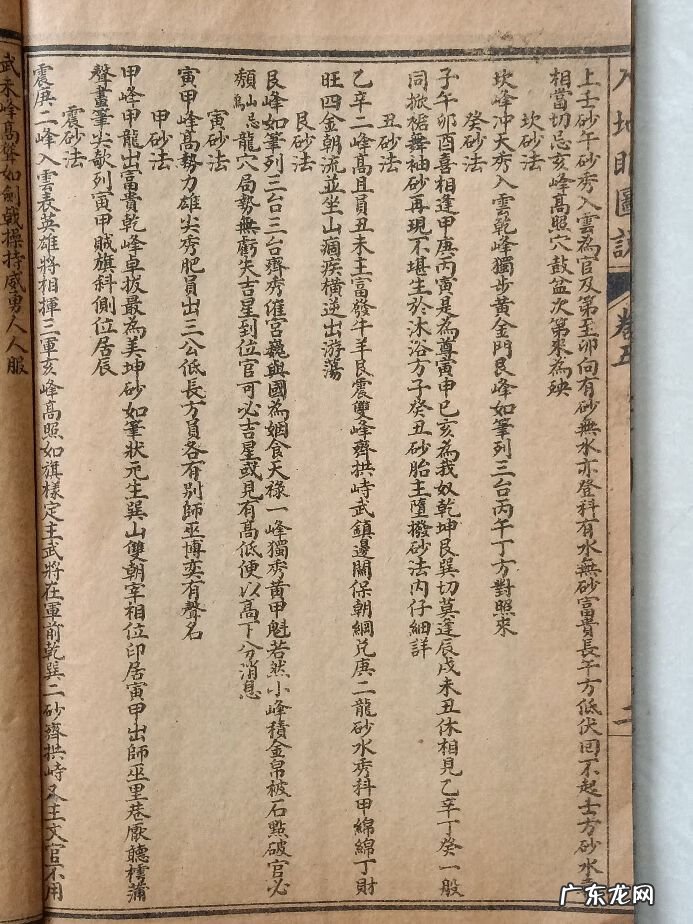 上士砂午砂秀入雲為官及第至卯向有砂無水亦登科有水無砂富貴長午方低伏回不起士方砂水
相當切忌亥峰高照穴鼓盆次第來為殃
坎砂法
坎峰冲天秀入雲乾峰獨步黃金門艮峰如筆列三台丙午丁方對照來
癸砂法
子午卯酉喜相逢甲庚丙寅是為尊寅申巳亥為我奴乾坤艮巽切莫逢辰戌未丑休相見乙辛丁癸一般
同掀裾舞袖砂再現不堪生於沐浴方子癸丑砂胎主墮撥砂法內仔細詳
丑砂法
乙辛二峰高且員丑未主富發牛羊艮震雙峰齊拱峙武鎮邊關保朝綱兌庚二龍砂水秀科甲綿綿丁財
旺四金朝流並坐山痼疾橫逆出游蕩
艮砂法
艮峰如筆列三台三台齊秀催宮巍與國為姻食天祿一峰獨秀黃甲魁若然小峰積金帛被石點破官必
頹山忌龍穴局勢無虧失吉星到位官可必吉星或見有高低便以高下分消息
寅砂法
寅甲峰高勢力雄尖秀肥員出三公低長方員各有別師巫博奕有聲名
甲砂法
甲峰甲龍出富貴乾峰卓拔最為美坤砂如筆狀元生巽山雙朝宰相位印居寅甲出師巫里巷厭聽樗蒲
聲畫筆尖欹列寅甲賊旗科側位居辰
震砂法
震庚二峰入雲表英雄將相揮三軍亥峰高照如旗樣定主武將在軍前乾巽二砂齊拱峙又主文官不用
武未峰高聲如劍戟操持威勇人人服
卷五
二
广东龙网